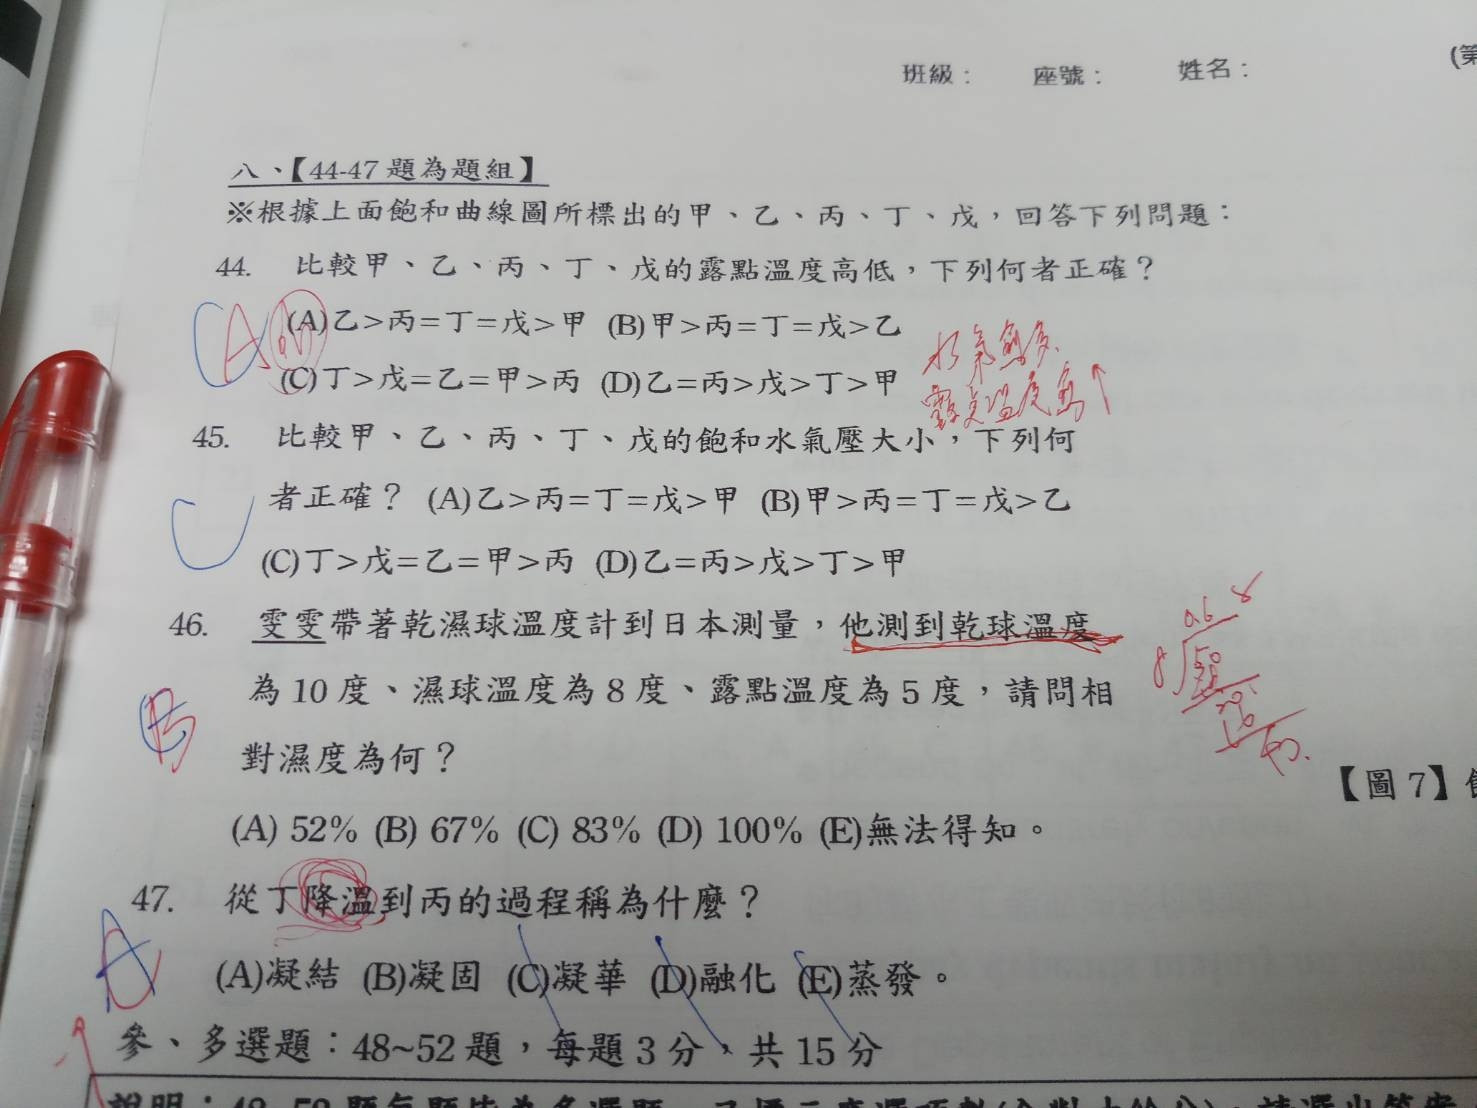 班級： 座號： 姓名： (第
八、【44-47 題為題組】
※根據上面飽和曲線圖所標出的甲、乙、丙、丁、戊，回答下列問題：
44. 比較甲、乙、丙、丁、戊的露點溫度高低，下列何者正確？
(A)乙>丙=丁=戊>甲 (B)甲>丙=丁=戊>乙
(C)丁>戊=乙=甲>丙 (D)乙=丙>戊>丁>甲
C A
水氣愈多
露點溫度高↑
45. 比較甲、乙、丙、丁、戊的飽和水氣壓大小，下列何
者正確？ (A)乙>丙=丁=戊>甲 (B)甲>丙=丁=戊>乙
C
(C)丁>戊=乙=甲>丙 (D)乙=丙>戊>丁>甲
46. 雯雯帶著乾濕球溫度計到日本測量，他測到乾球溫度
為 10 度、濕球溫度為 8 度、露點溫度為 5 度，請問相
B
對濕度為何？
0.6
8
50
【圖 7】
(A) 52% (B) 67% (C) 83% (D) 100% (E)無法得知。
47. 從丁降溫到丙的過程稱為什麼？
A
(A)凝結 (B)凝固 (C)凝華 (D)融化 (E)蒸發。
參、多選題：48~52 題，每題 3 分，共 15 分
說明：48~52 題每題皆為多選題